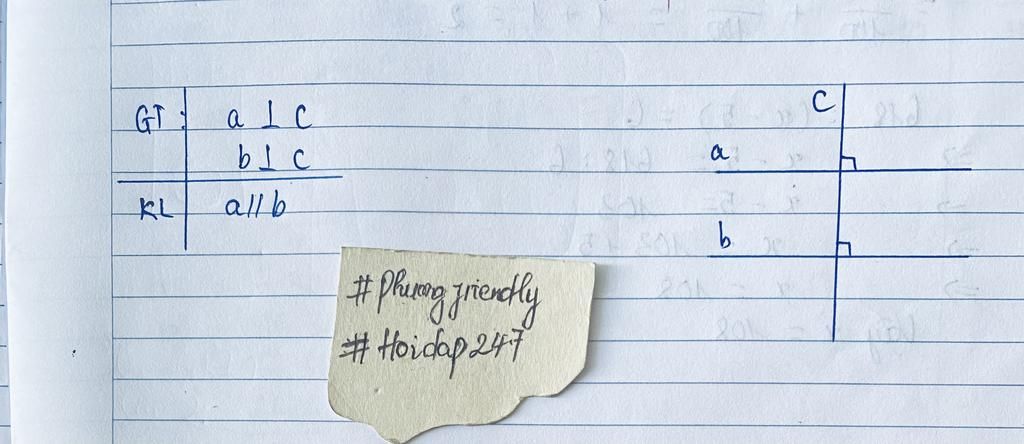 GT: a ⊥ c
b ⊥ c
KL a // b
c
a
b
# Phuong friendly
# Hoidap247